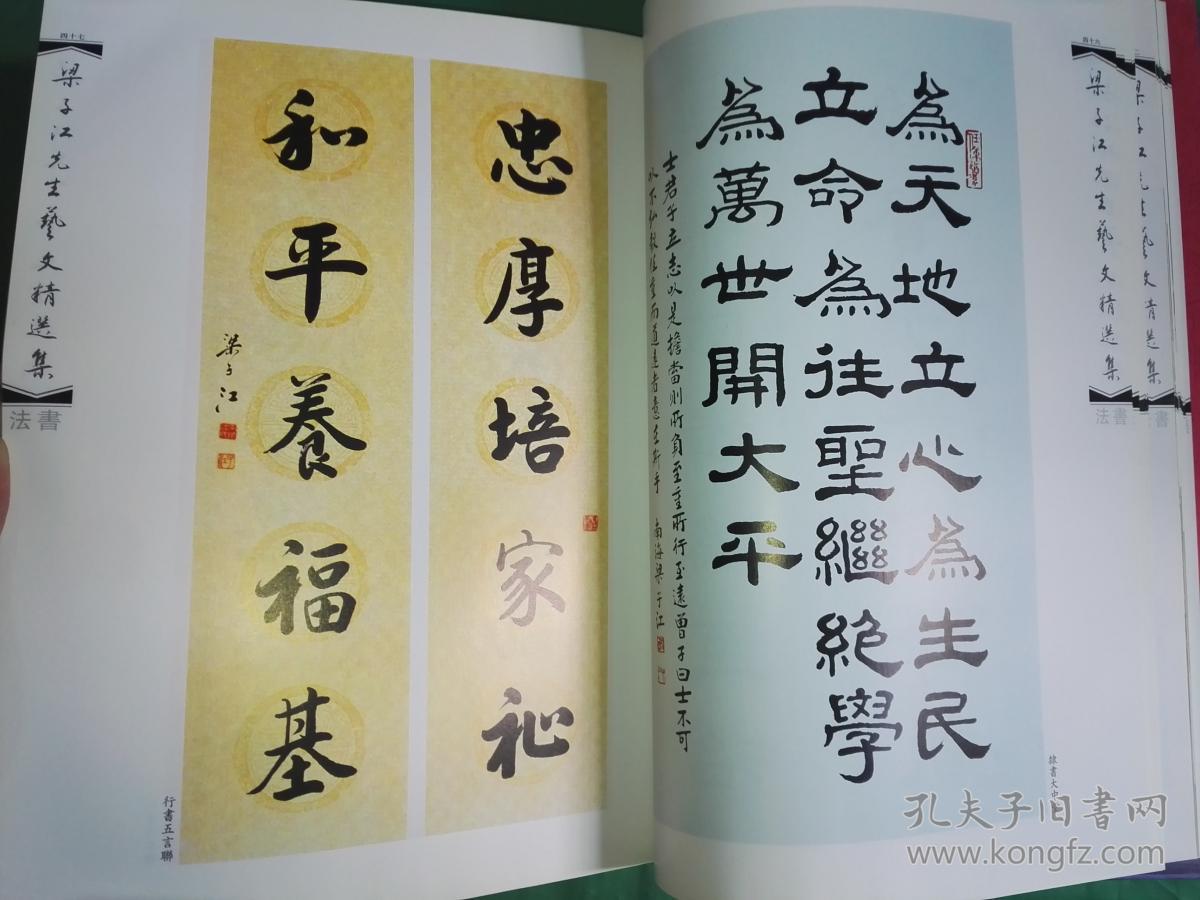 四十六
梁子江先生藝文精選集
法書
為天地立心為生民
立命為往聖繼絕學
為萬世開大平
士君子立志以是擔當則所負至重所行至遠曾子曰士不可
以不弘毅任重而道遠者意在斯乎 南海梁子江
隸書大中
四十七
梁子江先生藝文精選集
法書
忠厚培家祉
和平養福基
梁子江
行書五言聯
孔夫子旧书网
www.kongfz.com